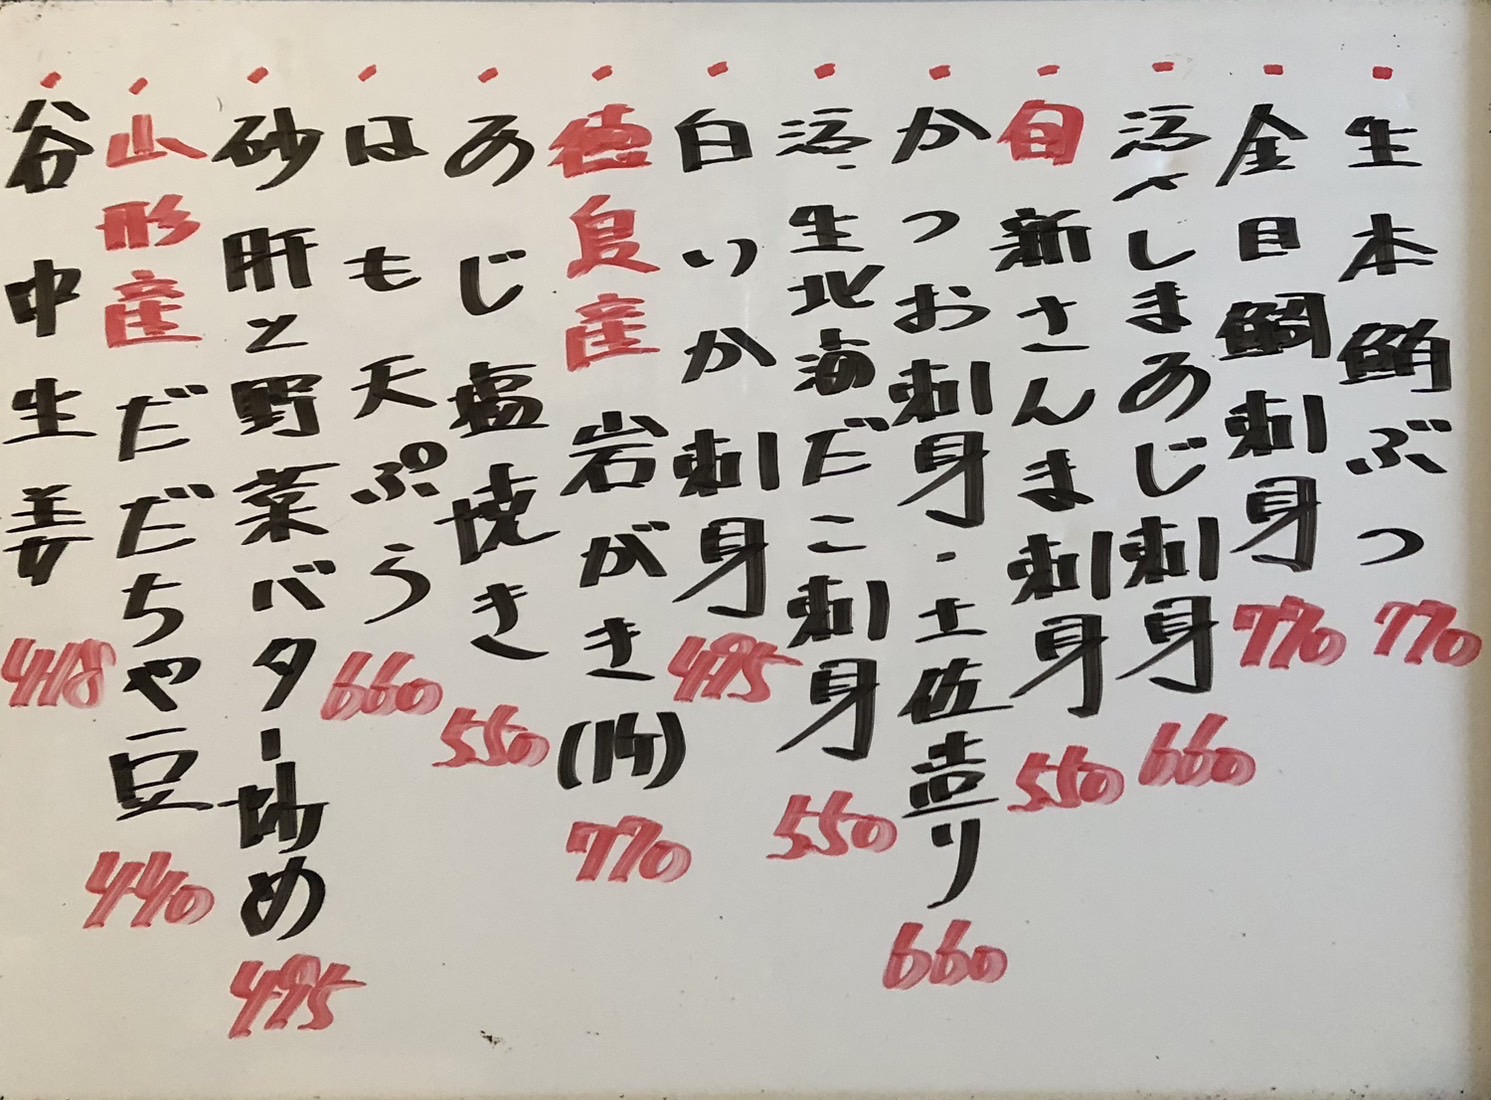 ・生本鮪ぶつ 770
・金目鯛刺身 770
・活〆しまあじ刺身 660
・旬 新さんま刺身 550
・かつお刺身・土佐造り 660
・活・生北海だこ刺身 550
・白いか刺身 495
・徳島産 岩がき(1ケ) 770
・あじ塩焼き 550
・はも天ぷら 660
・砂肝と野菜バター炒め 495
・山形産だだちゃ豆 440
・谷中生姜 418